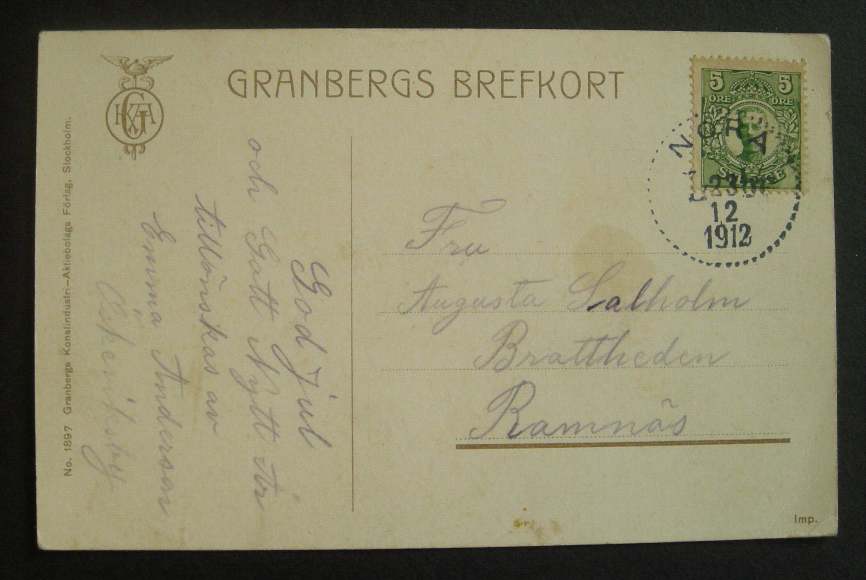 GRANBERGS BREFKORT
GKIA
No. 1897 Granbergs Konstindustri-Aktiebolags Förlag, Stockholm.
God Jul
och Gott Nytt År
tillönskas av
Emma Anderson
5 5
ÖRE ÖRE
NORA
23
12
1912
Fru
Augusta Salholm
Brattheden
Ramnäs
Imp.